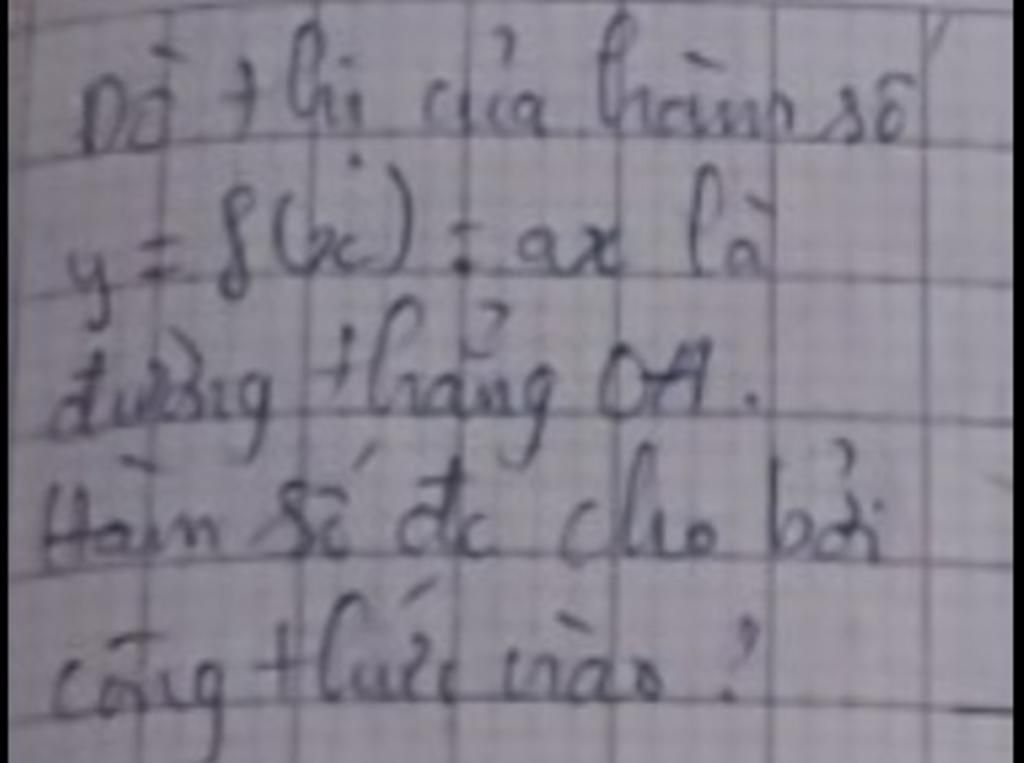 Đồ thị của hàm số
y = f(x) = ax là
đường thẳng OA.
Hàm số đc cho bởi
công thức nào?